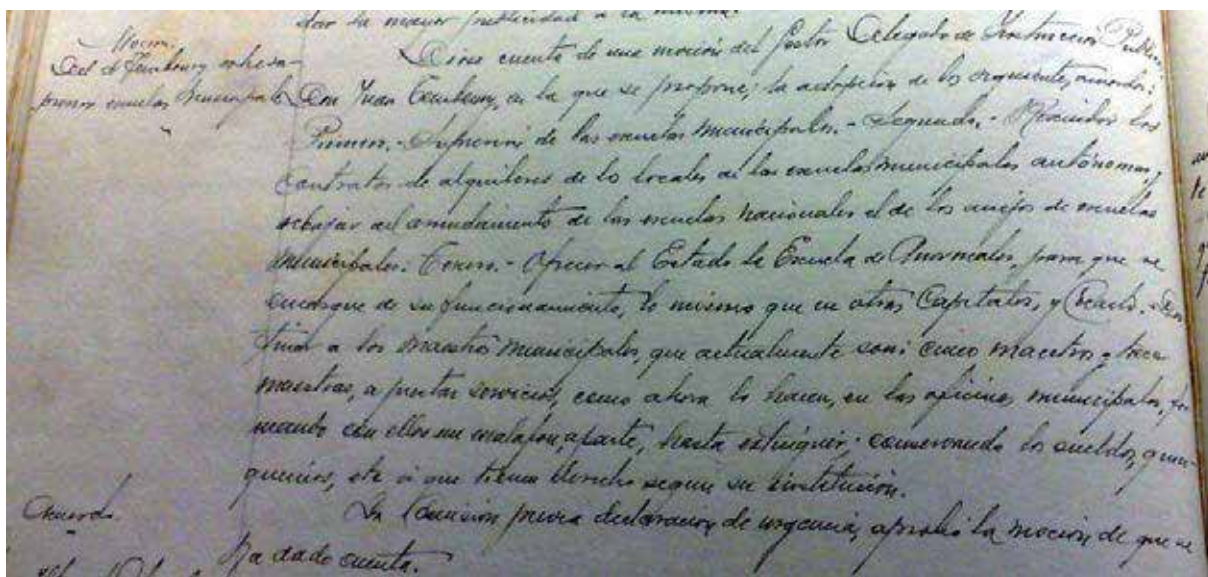 dar la mayor publicidad a la misma.
Moción
Diose cuenta de una moción del Gestor Delegado de Instrucción Pública,
Don Juan en la que se propone, la adopción de los siguientes, acuerdos:
Primero.- Supresión de las escuelas municipales.- Segundo.- Rescindir los
contratos de alquileres de lo locales de las escuelas municipales autónomas, y
rebajar del arrendamiento de las escuelas nacionales el de los anejos de escuelas
municipales: Tercero.- Ofrecer al Estado la Escuela de Anormales, para que se
encargue de su funcionamiento, lo mismo que en otras Capitales, y Cuarto.- Des
tinar a los maestros municipales, que actualmente son: cinco maestros y trece
maestras, a prestar servicios, como ahora lo hacen, en las oficinas municipales, for
mando con ellos un escalafon, aparte, hasta extinguir; conservando los sueldos, quin-
quenios, etc a que tienen derecho según su institución.
Acuerdo.
La Comisión previa declaracion de urgencia, aprobó la moción de que se
ha dado cuenta.